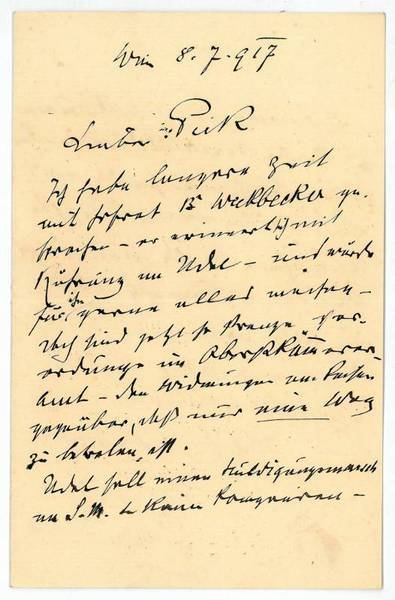 Wien 8.-7.-917
Lieber Pick
Ich habe längere Zeit
mit Hofrat B Weckbecker ge-
sprochen – er erinnert sich mit
Rührung an Udel – und würde
für ihn gerne alles machen –
doch sind jetzt so strenge Ver-
ordnunge im Oberstkämmerer-
Amt – den Widmungen am Kaiser
gegenüber, daß nur eine Weg
zu betreten ist.
Udel soll einen Huldigungsmarsch
an S.M. d Kaiser componiren –